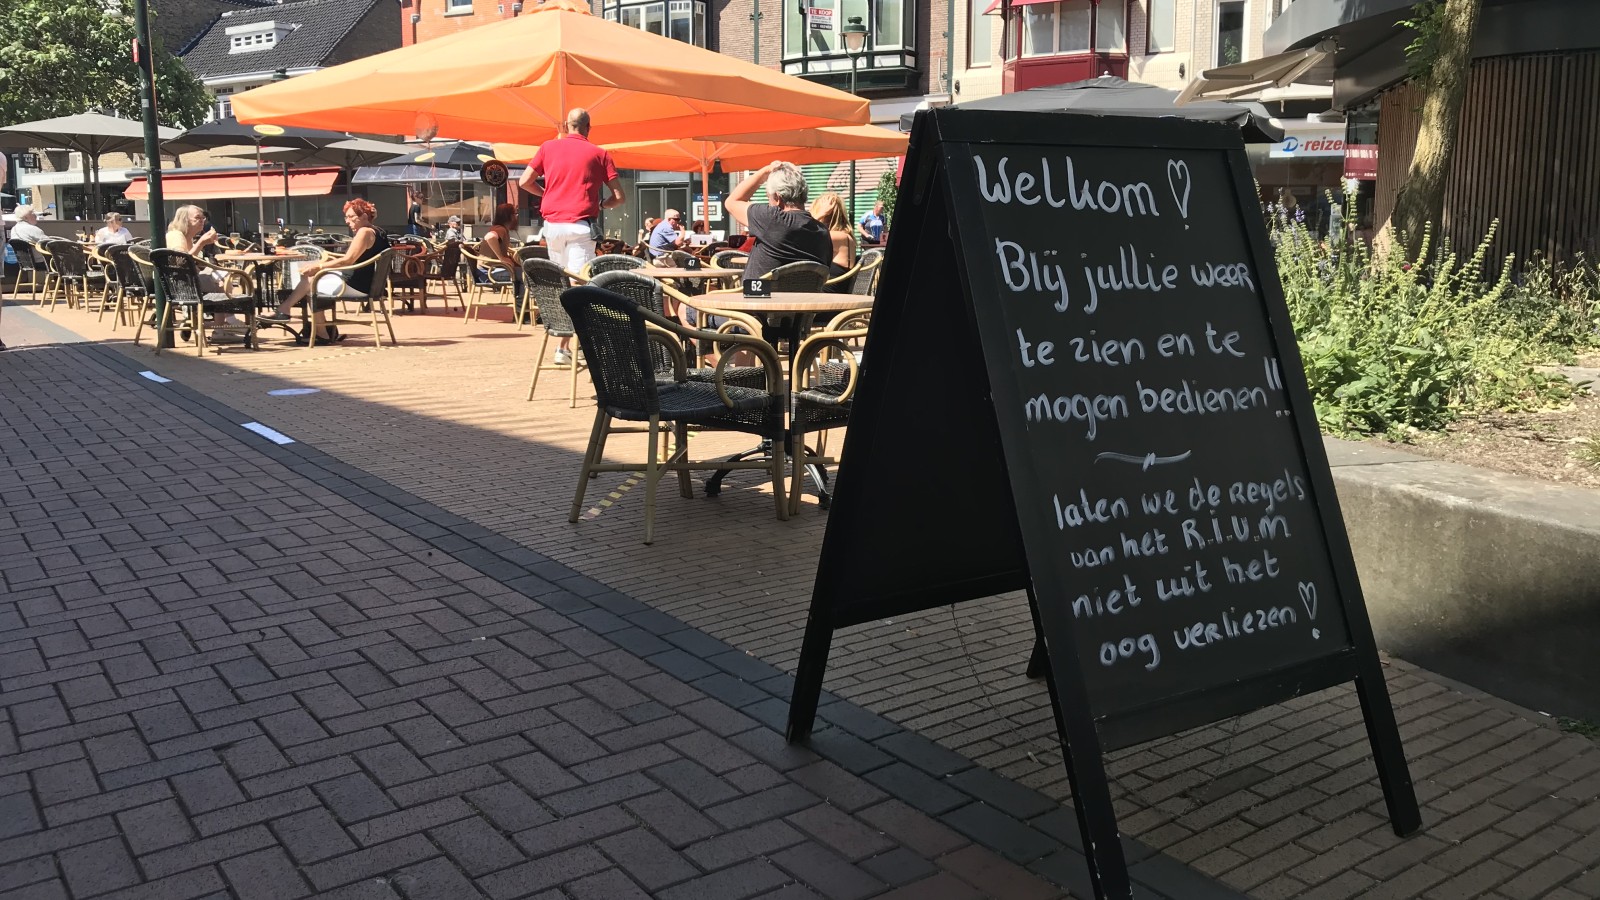 TE KOOP
D-reizen
47
52
Welkom
Blij jullie weer
te zien en te
mogen bedienen!!
laten we de regels
van het R.I.V.M
niet uit het
oog verliezen